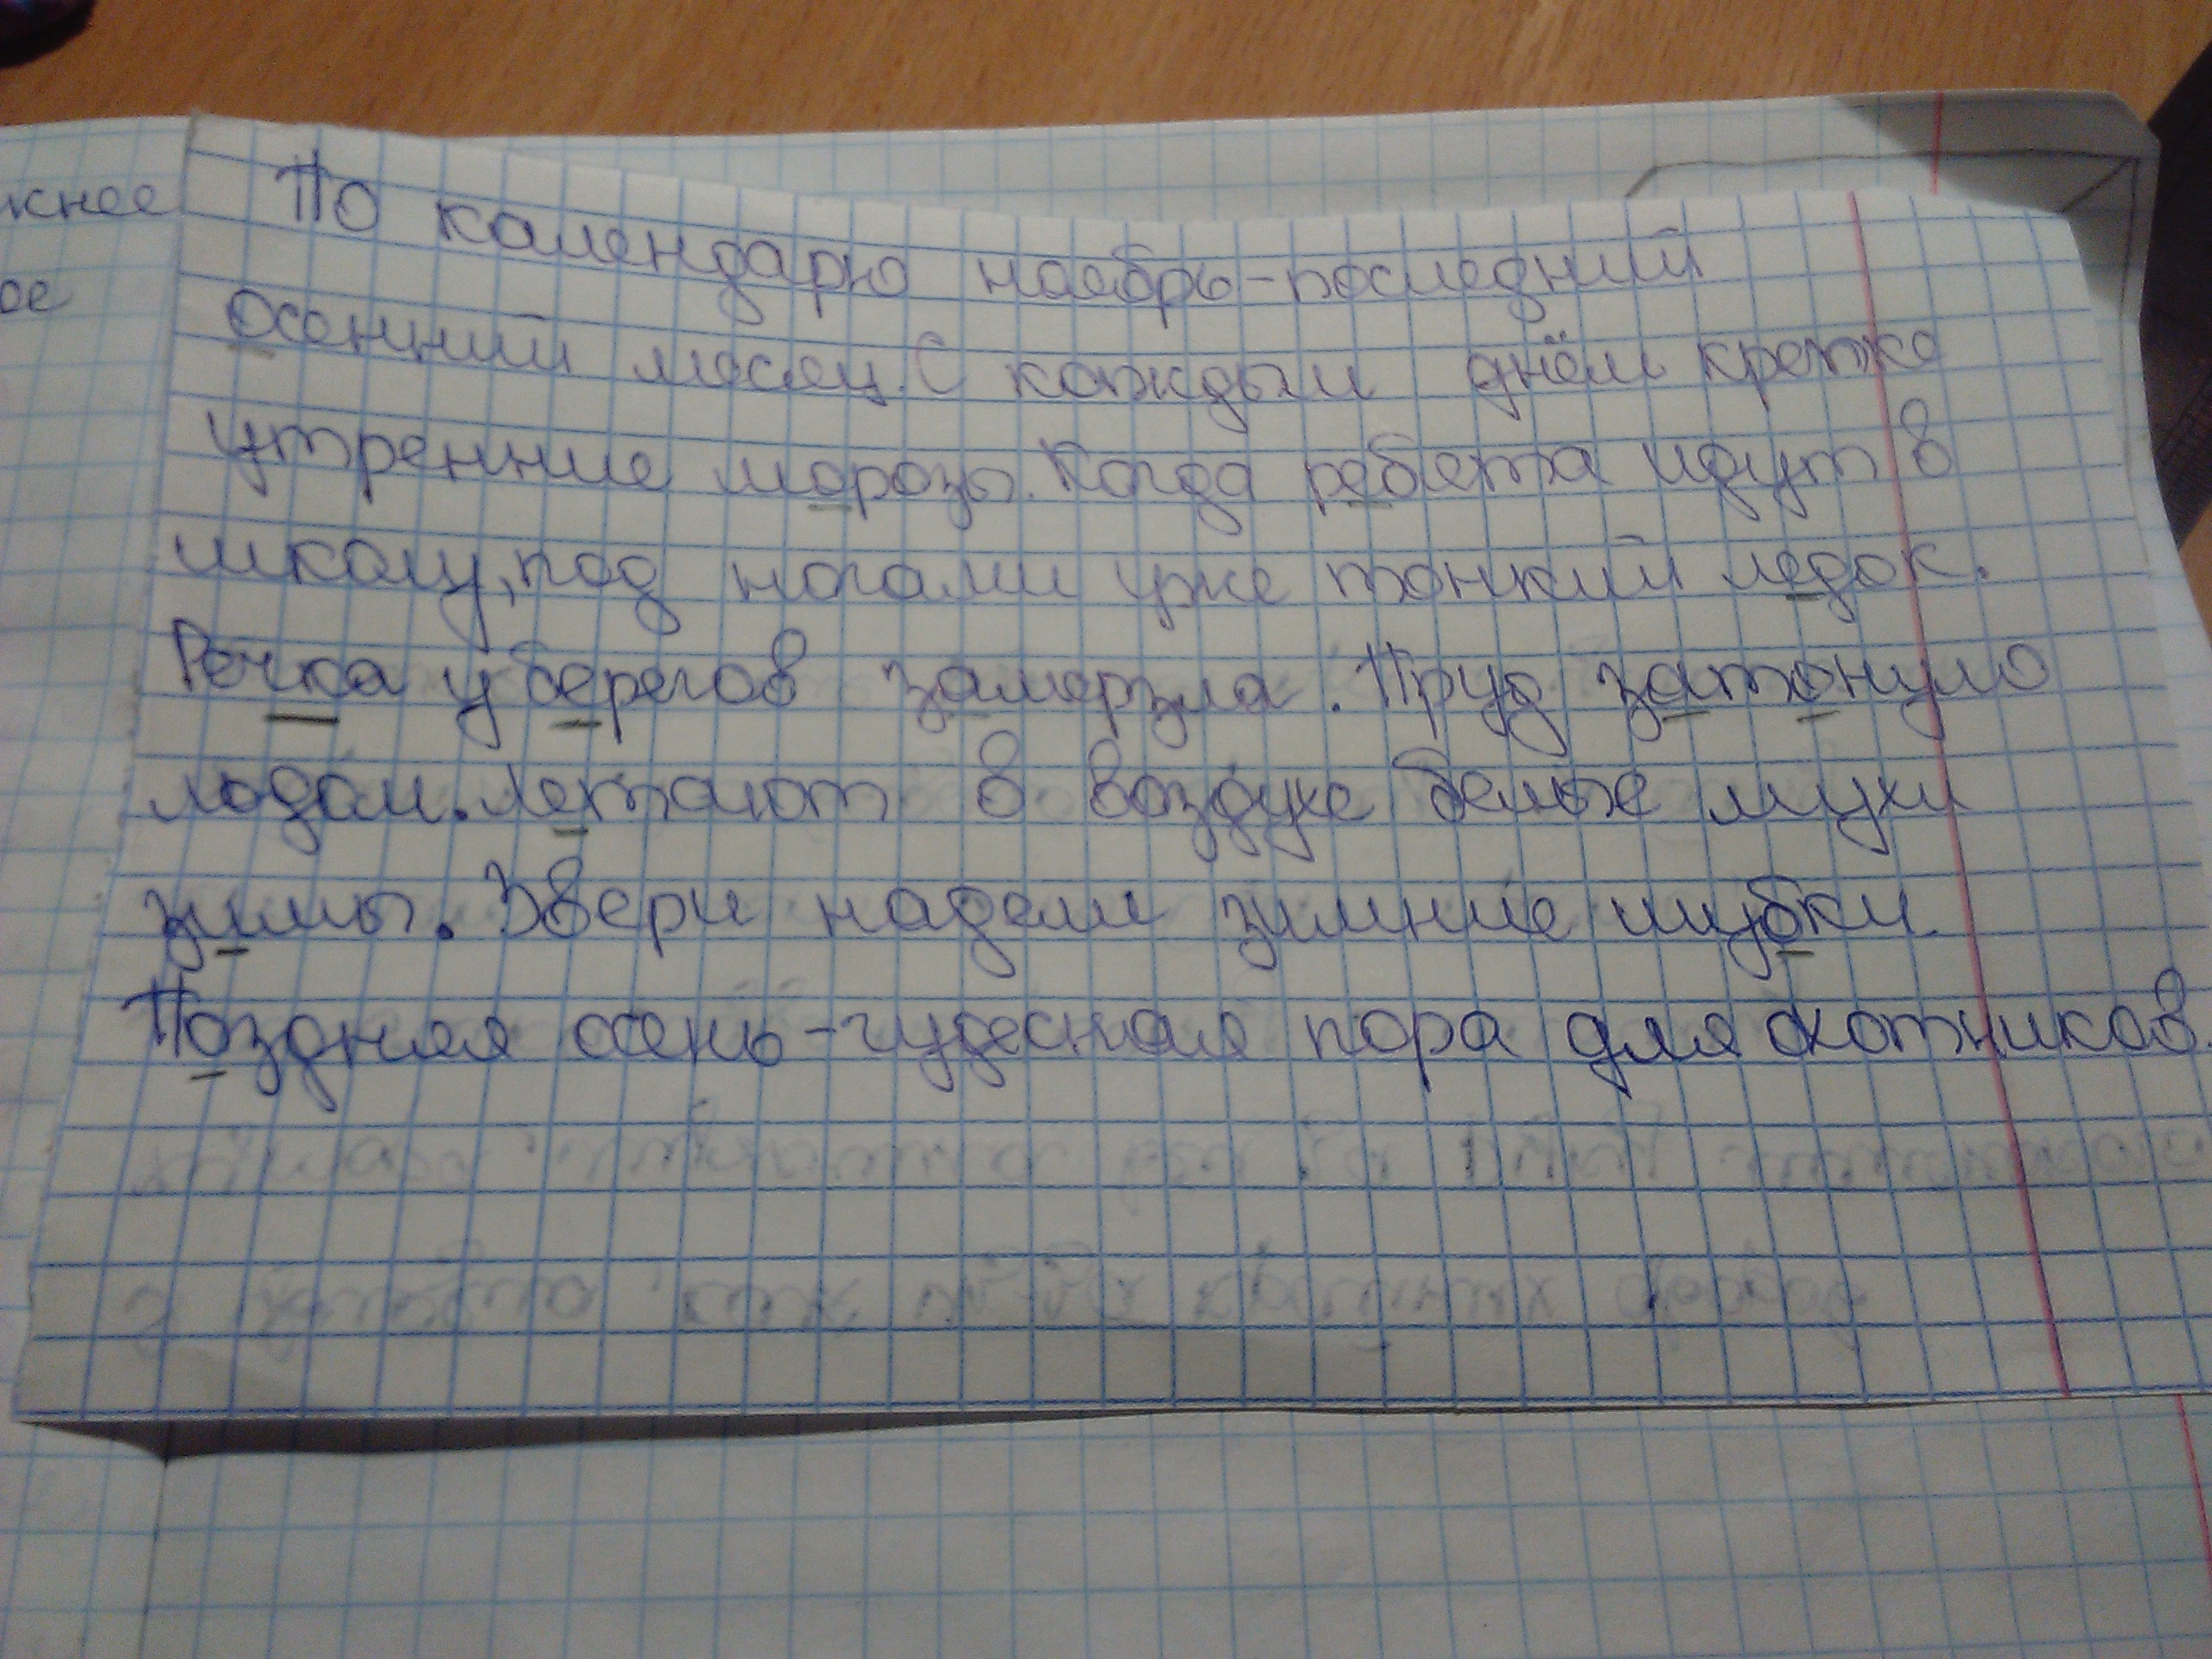 жнее
ое
По календарю ноябрь-последний
осенний месяц. С каждым днём крепко
утренние морозы. Когда ребята идут в
школу, под ногами уже тонкий ледок.
Речка у берегов замерзла. Пруд затонуло
лодом. Летают в воздухе белые мухи
зимы. Звери надели зимние шубки.
Поздняя осень-чудесная пора для охотников.